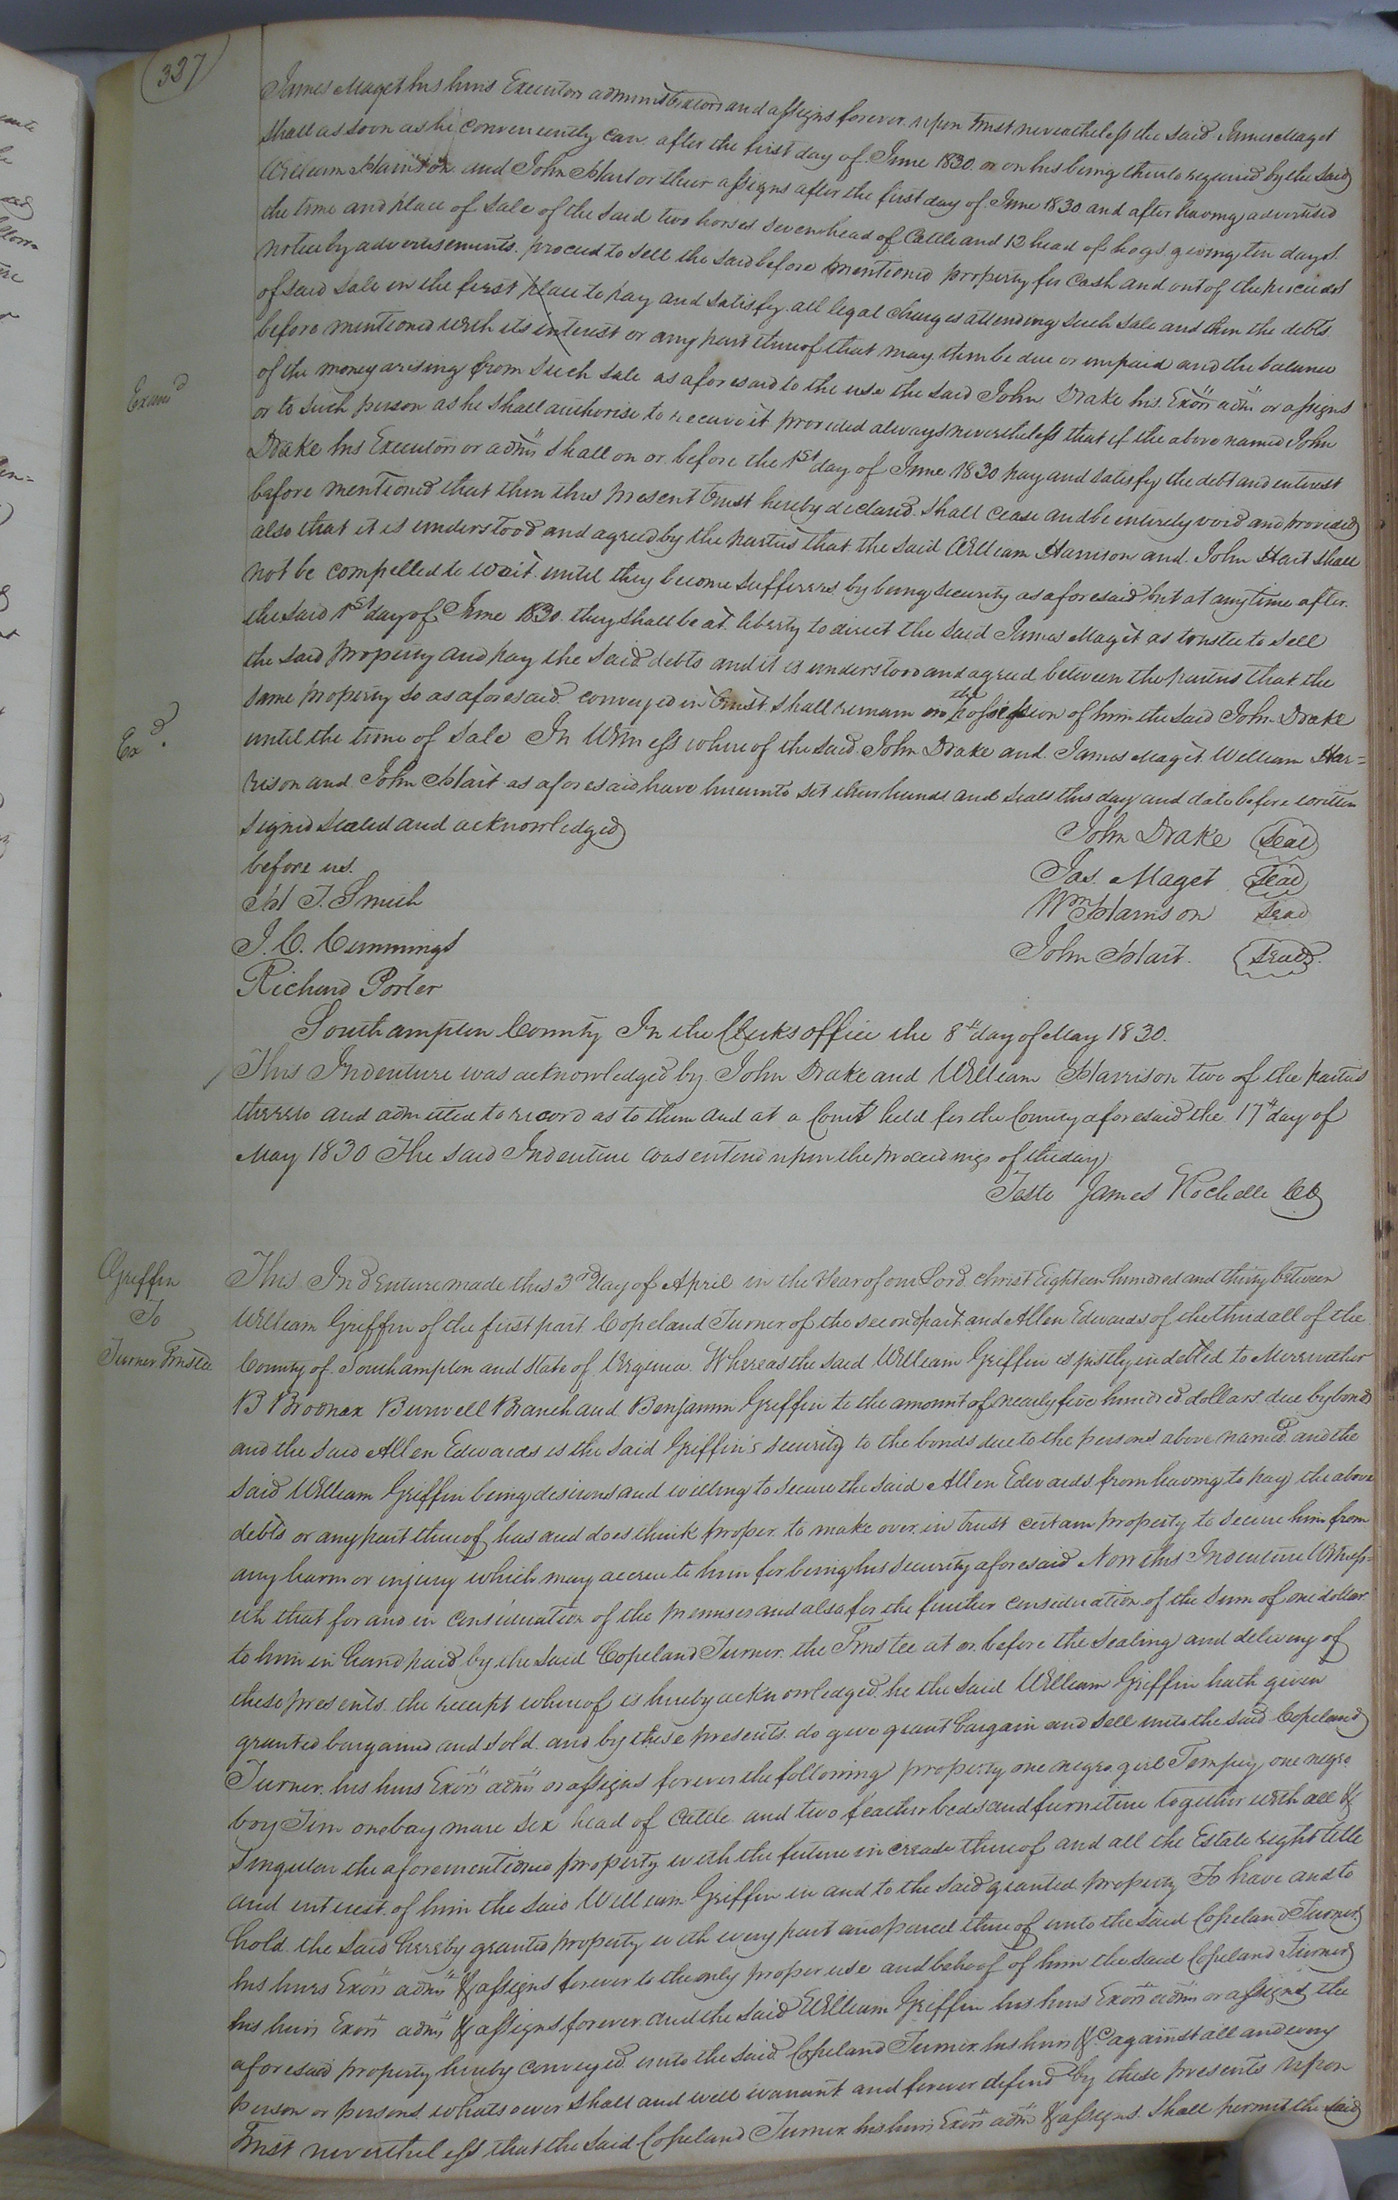 337
James Maget his heirs Executors administrators and assigns forever upon trust nevertheless the said James Maget
shall as soon as he conveniently can after the first day of June 1830 or on his being thereto required by the said
William Harrison and John Hart or their assigns after the first day of June 1830 and after having advertised
the time and place of sale of the said two horses seven head of Cattle and 12 head of hogs giving ten days
notice by advertisements proceed to sell the said before mentioned property for cash and out of the proceeds
of said sale in the first place to pay and satisfy all legal charges attending such sale and then the debts
before mentioned with its interest or any part thereof that may then be due or unpaid and the balance
of the money arising from such sale as aforesaid to the use the said John Drake his Exors adms or assigns
Examd
or to such person as he shall authorise to receive it provided always nevertheless that if the above named John
Drake his Executors or adms shall on or before the 1st day of June 1830 pay and satisfy the debt and interest
before mentioned that then this present trust hereby declared shall cease and be entirely void and provided
also that it is understood and agreed by the parties that the said William Harrison and John Hart shall
not be compelled to wait until they become sufferers by being security as aforesaid but at any time after
the said 1st day of June 1830 they shall be at liberty to direct the said James Maget as trustee to sell
the said property and pay the said debts and it is understood and agreed between the parties that the
same property so as aforesaid conveyed in trust shall remain in the possession of him the said John Drake
Exd.
until the time of sale In Witness whereof the said John Drake and James Maget William Har=
rison and John Hart as aforesaid have hereunto set their hands and seals this day and date before written
signed sealed and acknowledged John Drake Seal
before us. Jas. Maget Seal
M T. Smith Wm Harrison Seal
J. C. Cummings John Hart. Seal
Richard Porter
Southampton County In the Clerks office the 8th day of May 1830.
This Indenture was acknowledged by John Drake and William Harrison two of the parties
thereto and admitted to record as to them and at a Court held for the County aforesaid the 17th day of
May 1830 The said Indenture was entered upon the proceedings of the day
Teste James Rochelle CC
Griffin
To
Turner Trustee
This Indenture made this 3rd day of April in the Year of our Lord Christ Eighteen hundred and thirty between
William Griffin of the first part Copeland Turner of the second part and Allen Edwards of the third all of the
County of Southampton and State of Virginia Whereas the said William Griffin is justly indebted to Merewather
B Broonax Burwell Branch and Benjamin Griffin to the amount of nearly five hundred dollars due by bond
and the said Allen Edwards is the said Griffin's security to the bonds due to the persons above named and the
said William Griffin being desirous and willing to secure the said Allen Edwards from having to pay the above
debts or any part thereof has and does think proper to make over in trust certain property to secure him from
any harm or injury which may accrue to him for being his security aforesaid Now this Indenture Witness=
eth that for and in consideration of the premises and also for the further consideration of the sum of one dollar
to him in hand paid by the said Copeland Turner the Trustee at or before the sealing and delivery of
these presents the receipt whereof is hereby acknowledged he the said William Griffin hath given
granted bargained and sold and by these presents do give grant bargain and sell unto the said Copeland
Turner his heirs Exors adms or assigns forever the following property one negro girl Tempey one negro
boy Jim one bay mare six head of cattle and two feather beds and furniture together with all &
singular the aforementioned property with the future increase thereof and all the Estate right title
and interest of him the said William Griffin in and to the said granted property To have and to
hold the said hereby granted property with every part and parcel thereof unto the said Copeland Turner
his heirs Exors adms & assigns forever to the only proper use and behoof of him the said Copeland Turner
his heirs Exors adms & assigns forever and the said William Griffin his heirs Exors adms or assigns the
aforesaid property hereby conveyed unto the said Copeland Turner his heirs &c against all and every
person or persons whatsoever shall and will warrant and forever defend by these presents upon
Trust nevertheless that the said Copeland Turner his heirs Exors adms & assigns shall permit the said